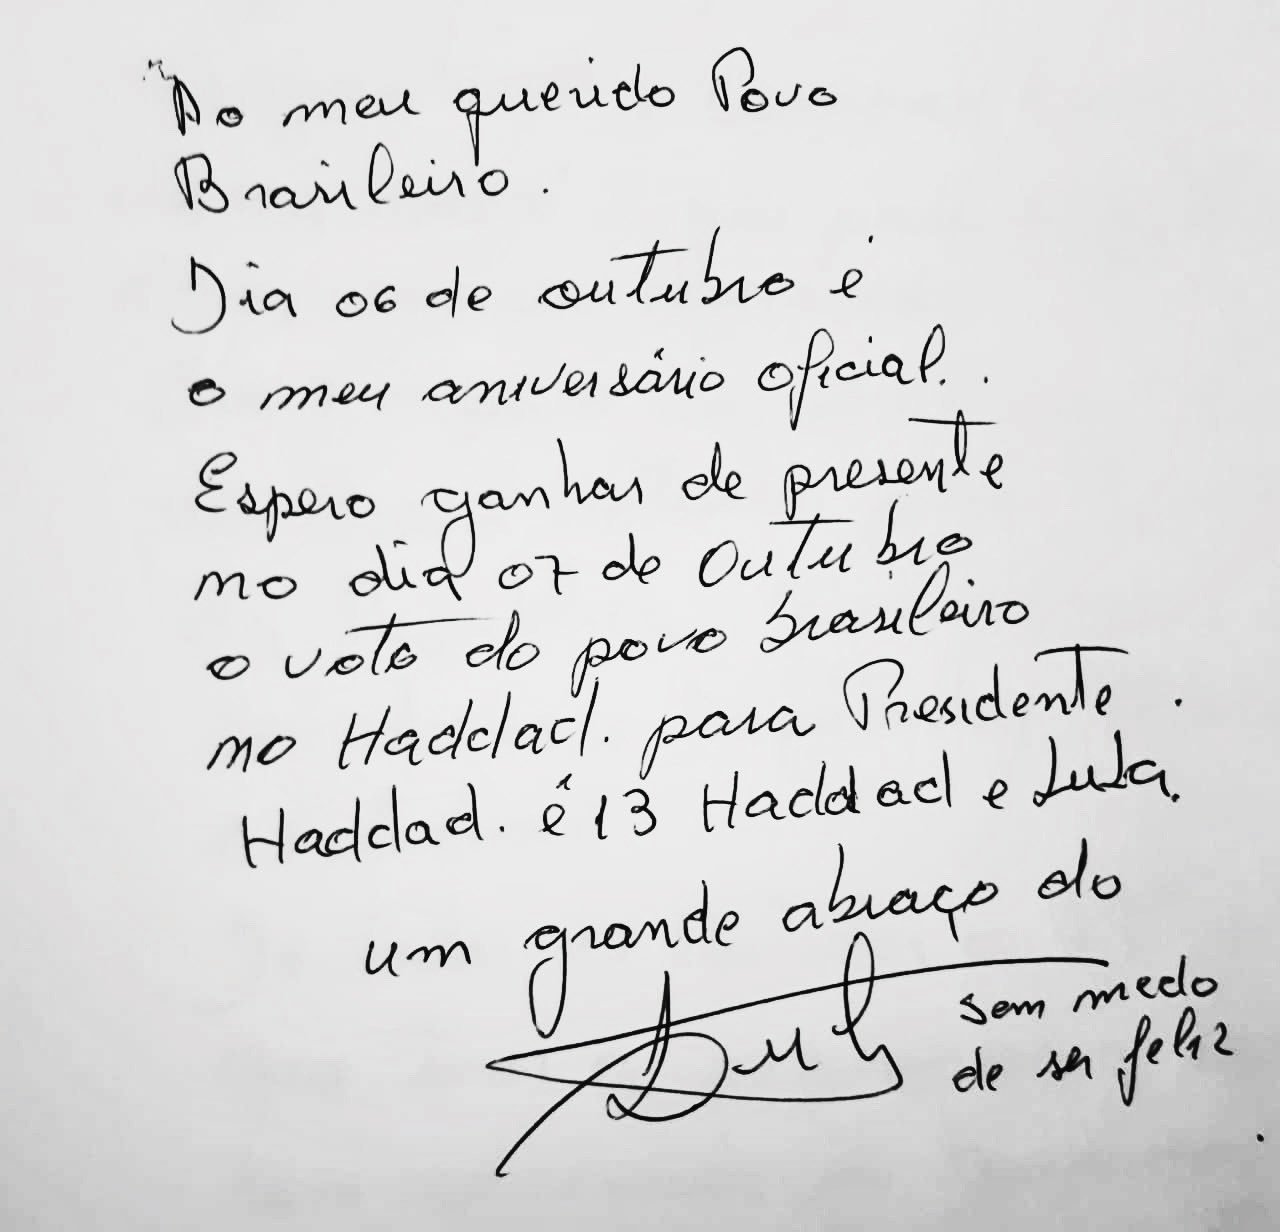 Ao meu querido Povo
Brasileiro.
Dia 06 de outubro é
o meu aniversário oficial..
Espero ganhar de presente
no dia 07 de Outubro
o voto do povo brasileiro
no Haddad. para Presidente.
Haddad. é 13 Haddad e Lula.
um grande abraço do
Lula
sem medo
de ser feliz